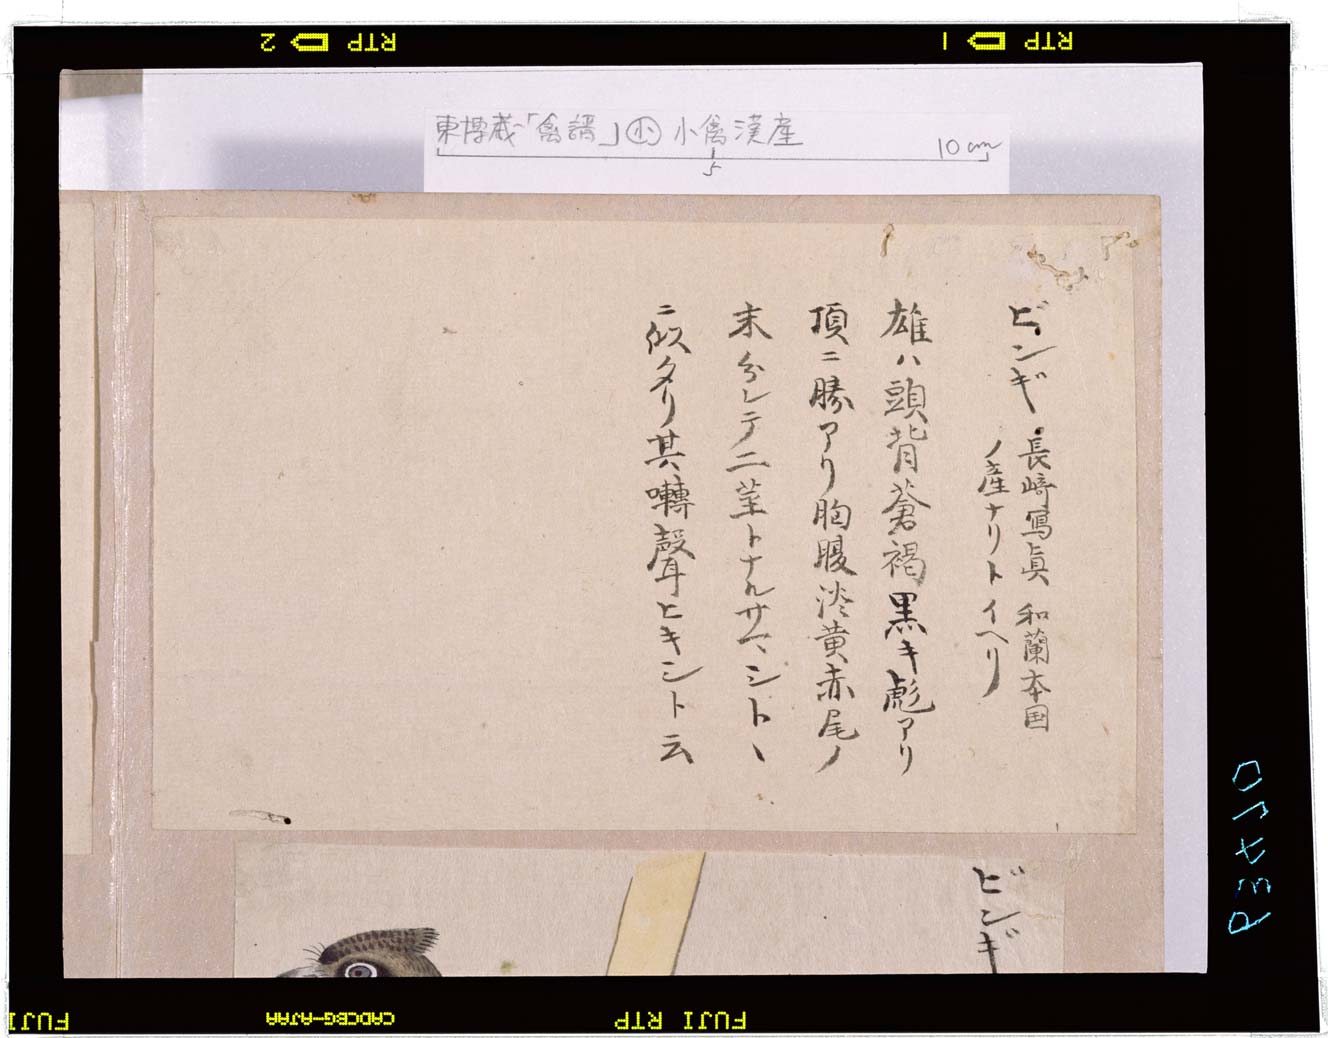 RTP 2
RTP 1
東博蔵「禽譜」㊁ 小禽漢産
5
10cm
ビンギ 長崎寫眞 和蘭本国
ノ産ナリトイヘリ
雄ハ頭背蒼褐黒キ彪アリ
頂ニ勝アリ胸腹淡黄赤尾ノ
末分レテ二茎トナルサマ、シトヽ
ニ似タリ其囀聲ヒキシト云
ビンギ
FUJI
CADCBG-AJAA
FUJI RTP